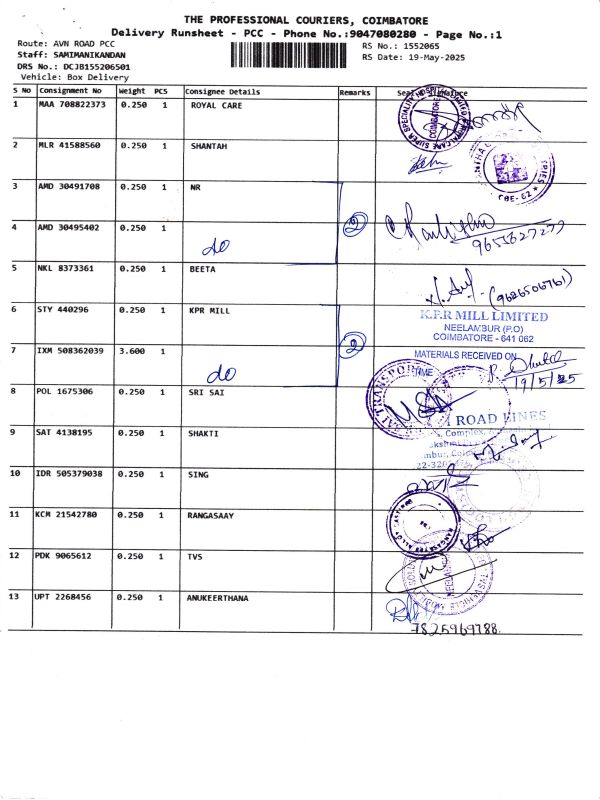 THE PROFESSIONAL COURIERS, COIMBATORE
Delivery Runsheet - PCC - Phone No.:9047080280 - Page No.:1
Route: AVN ROAD PCC
Staff: SAMIMANIKANDAN
DRS No.: DCJB155206501
Vehicle: Box Delivery
RS No.: 1552065
RS Date: 19-May-2025
S No Consignment No Weight PCS Consignee Details Remarks Seal & Signature
1 MAA 708822373 0.250 1 ROYAL CARE
2 MLR 41588560 0.250 1 SHANTAH
CBE-62
3 AMD 30491708 0.250 1 NR
2
4 AMD 30495402 0.250 1 do
9655627277
5 NKL 8373361 0.250 1 BEETA
(9626506761)
6 STY 440296 0.250 1 KPR MILL
K.P.R MILL LIMITED
NEELAMBUR (P.O)
COIMBATORE - 641 062
2
7 IXM 508362039 3.600 1 do
MATERIALS RECEIVED ON
TIME
19/5/25
8 POL 1675306 0.250 1 SRI SAI
SAI TRANSPORT
ROAD LINES
9 SAT 4138195 0.250 1 SHAKTI
Complex,
10 IDR 505379038 0.250 1 SING
11 KCM 21542780 0.250 1 RANGASAAY
12 PDK 9065612 0.250 1 TVS
13 UPT 2268456 0.250 1 ANUKEERTHANA
7825969788